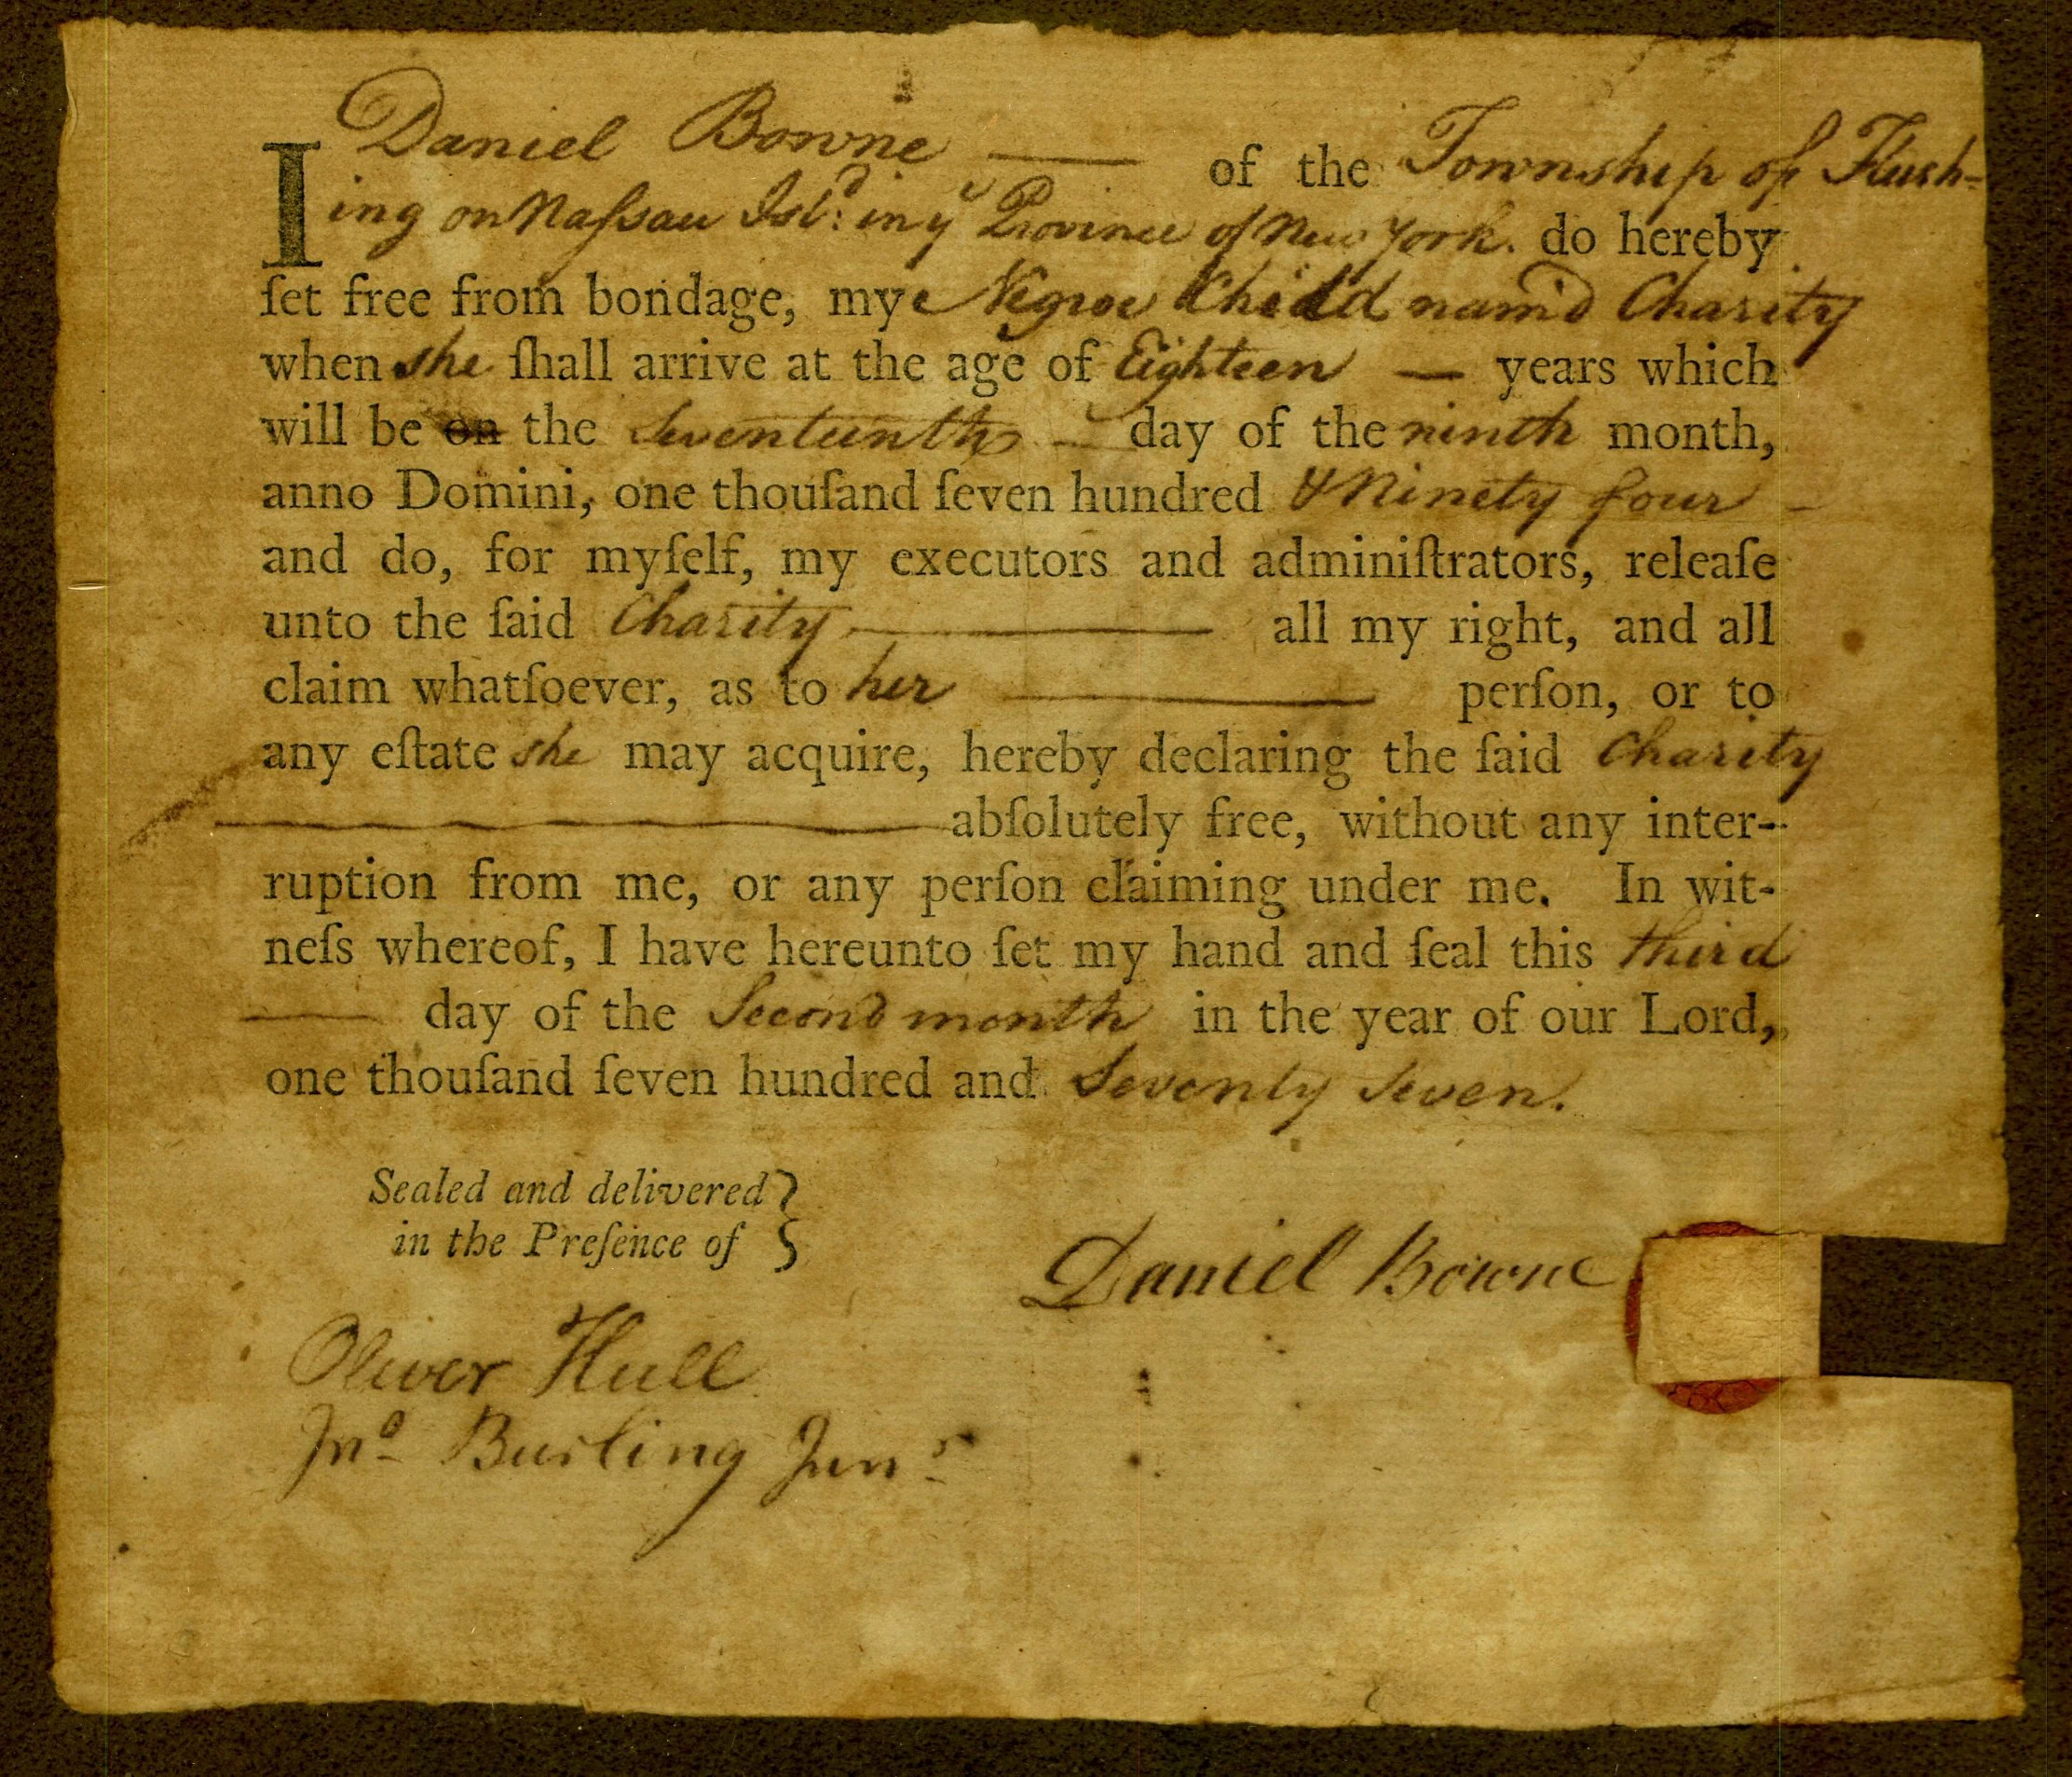 I Daniel Bowne —— of the Township of Flush-
ing on Naſsau Isl.d: in ye Province of New York. do hereby
ſet free from bondage, my Negroe Child nam'd Charity
when she ſhall arrive at the age of Eighteen — years which
will be on the Seventeenth — day of the ninth month,
anno Domini, one thouſand ſeven hundred & Ninety four —
and do, for myſelf, my executors and adminiſtrators, releaſe
unto the ſaid Charity —— all my right, and all
claim whatſoever, as to her —— perſon, or to
any eſtate she may acquire, hereby declaring the ſaid Charity
—— abſolutely free, without any inter-
ruption from me, or any perſon claiming under me. In wit-
neſs whereof, I have hereunto ſet my hand and ſeal this third
—— day of the Second month in the year of our Lord,
one thouſand ſeven hundred and Seventy Seven.
Sealed and delivered }
in the Preſence of }
Daniel Bowne
Oliver Hull
Jno. Burling Junr.